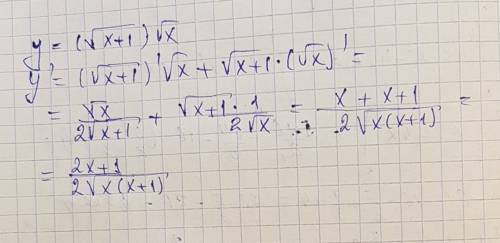 y = (√x+1) √x
y' = (√x+1)' √x + √x+1 · (√x)' =
= √x / 2√x+1 + √x+1 · 1 / 2√x = x + x+1 / 2√x(x+1) =
= 2x+1 / 2√x(x+1)